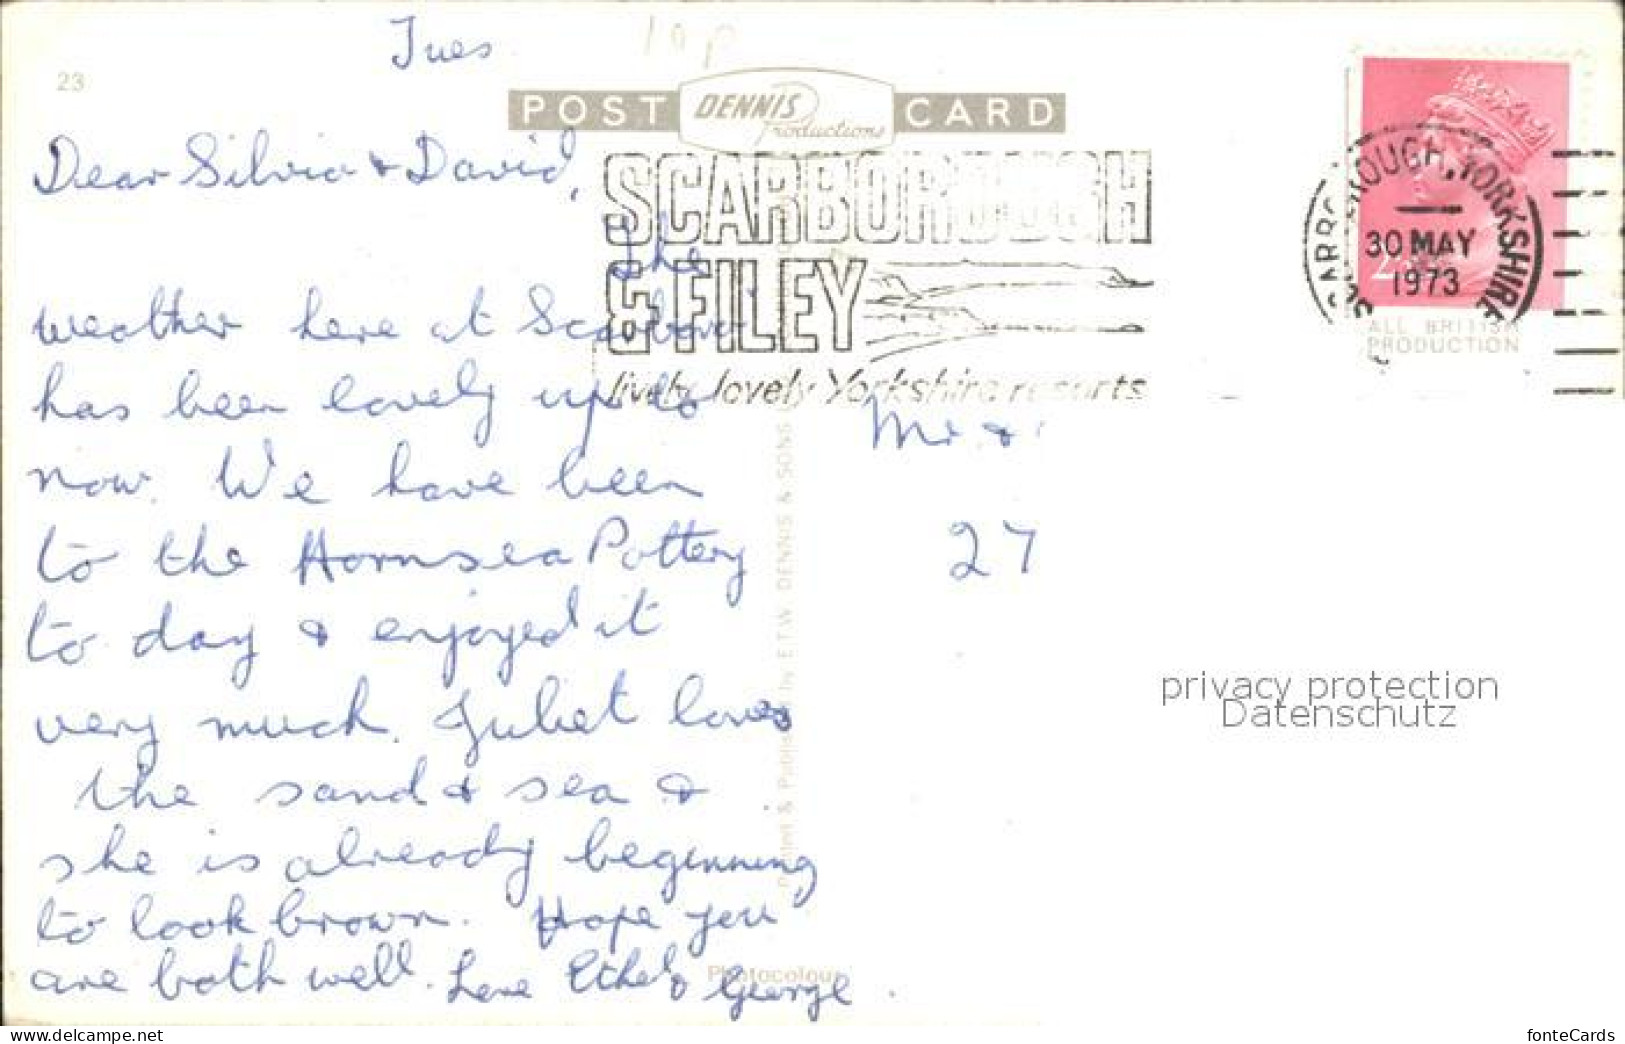 Tues
10p
23
POST DENNIS Productions CARD
Dear Silvia & David,
SCARBOROUGH
& FILEY
lively lovely Yorkshire resorts
SCARBOROUGH, YORKSHIRE
30 MAY
1973
ALL BRITISH
PRODUCTION
The
weather here at Scarboro
has been lovely up to
now. We have been
to the Hornsea Pottery
to day & enjoyed it
very much. Juliet loves
the sand & sea &
she is already beginning
to look brown. Hope you
are both well. Love Ethel & George.
Mr &
27
Printed & Published by E.T.W. DENNIS & SONS
Photocolour
privacy protection
Datenschutz
www.delcampe.net
fonteCards